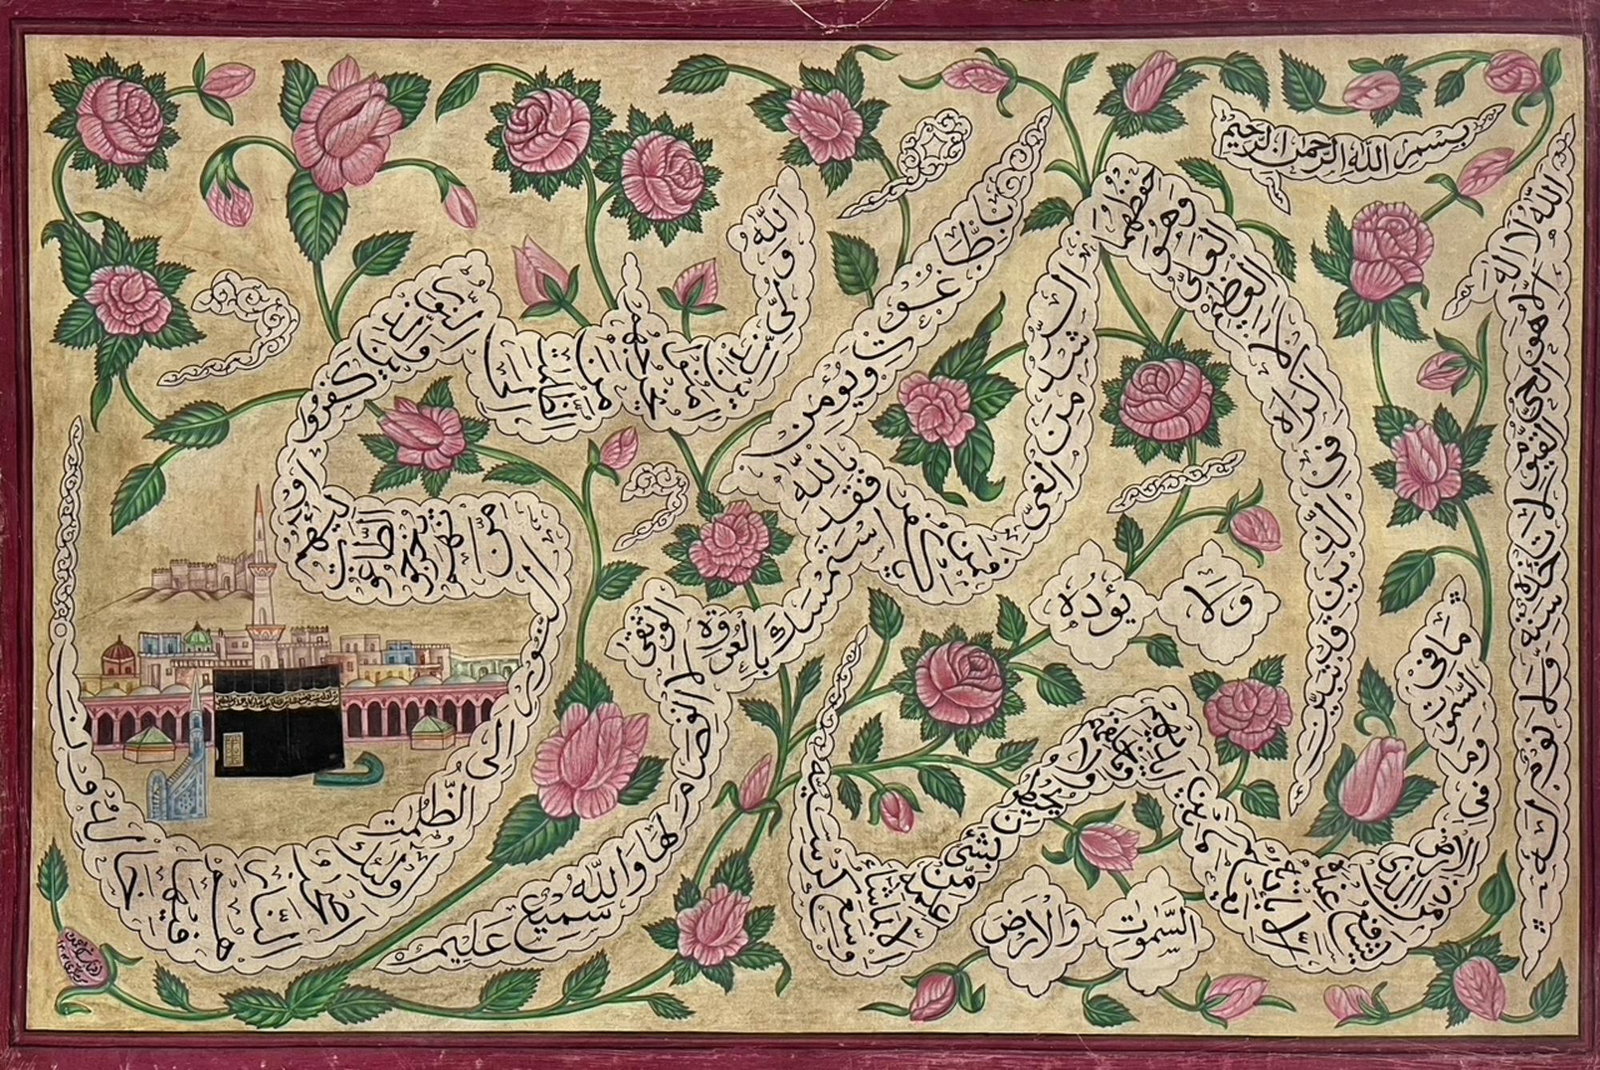 بسم الله الرحمن الرحيم
الله لا اله الا هو الحي القيوم لا تأخذه سنة ولا نوم له
ما في السموت وما في الارض من ذا الذي يشفع عنده الا باذنه يعلم ما بين ايديهم وما خلفهم ولا يحيطون بشئ من علمه الا بما شاء وسع كرسيه
السموت
والارض
ولا
يؤده
حفظهما وهو العلي العظيم لا اكراه في الدين قد تبين
الرشد من الغي فمن يكفر
بالطاغوت ويؤمن بالله فقد استمسك بالعروة الوثقى لا انفصام لها والله سميع عليم
الله ولي الذين امنوا يخرجهم من الظلمات الى النور والذين كفروا اولياؤهم الطاغوت يخرجونهم من النور الى الظلمت اولئك اصحاب النار هم فيها خالدون